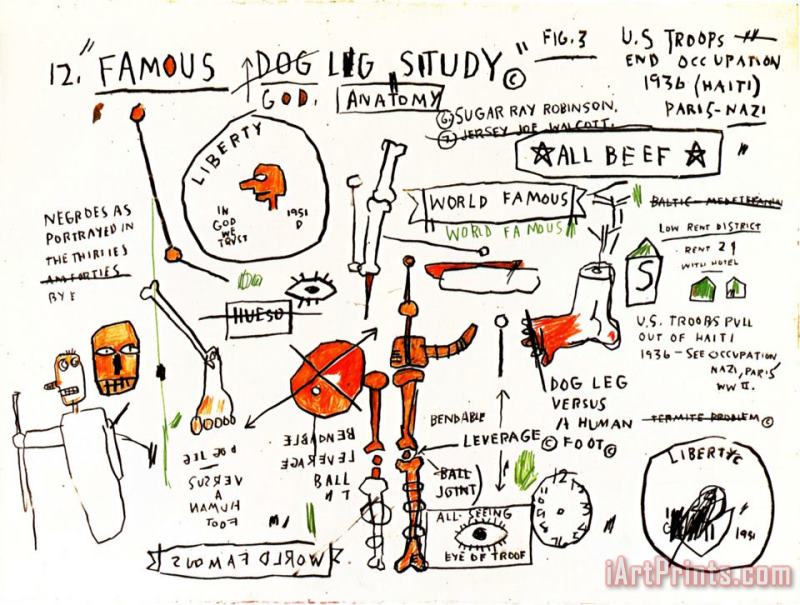 12." FAMOUS DOG LEG STUDY"©
GOD.
ANATOMY
FIG.3
U.S TROOPS
END OCCUPATION
1936 (HAITI)
PARIS-NAZI
⑥ SUGAR RAY ROBINSON.
⑦ JERSEY JOE WALCOTT.
☆ALL BEEF☆"
LIBERTY
IN
GOD
WE
TRUST
1951
D
WORLD FAMOUS
WORLD FAMOUS
NEGROES AS
PORTRAYED IN
THE THIRTIES
BY
HUESO
LOW RENT DISTRICT
RENT 29
WITH HOTEL
S
U.S. TROOPS PULL
OUT OF HAITI
1936-SEE OCCUPATION
NAZI, PARIS
WW II.
DOG LEG
VERSUS
A HUMAN
FOOT©
TERMITE PROBLEM©
BENDABLE
LEVERAGE©
BALL
JOINT)
BENDABLE
LEVERAGE
BALL
DOG LEG
VERSUS
A
HUMAN
FOOT
ALL-SEEING
EYE OF TROOF
12
LIBERTY
1951
WORLD FAMOUS
iArtPrints.com